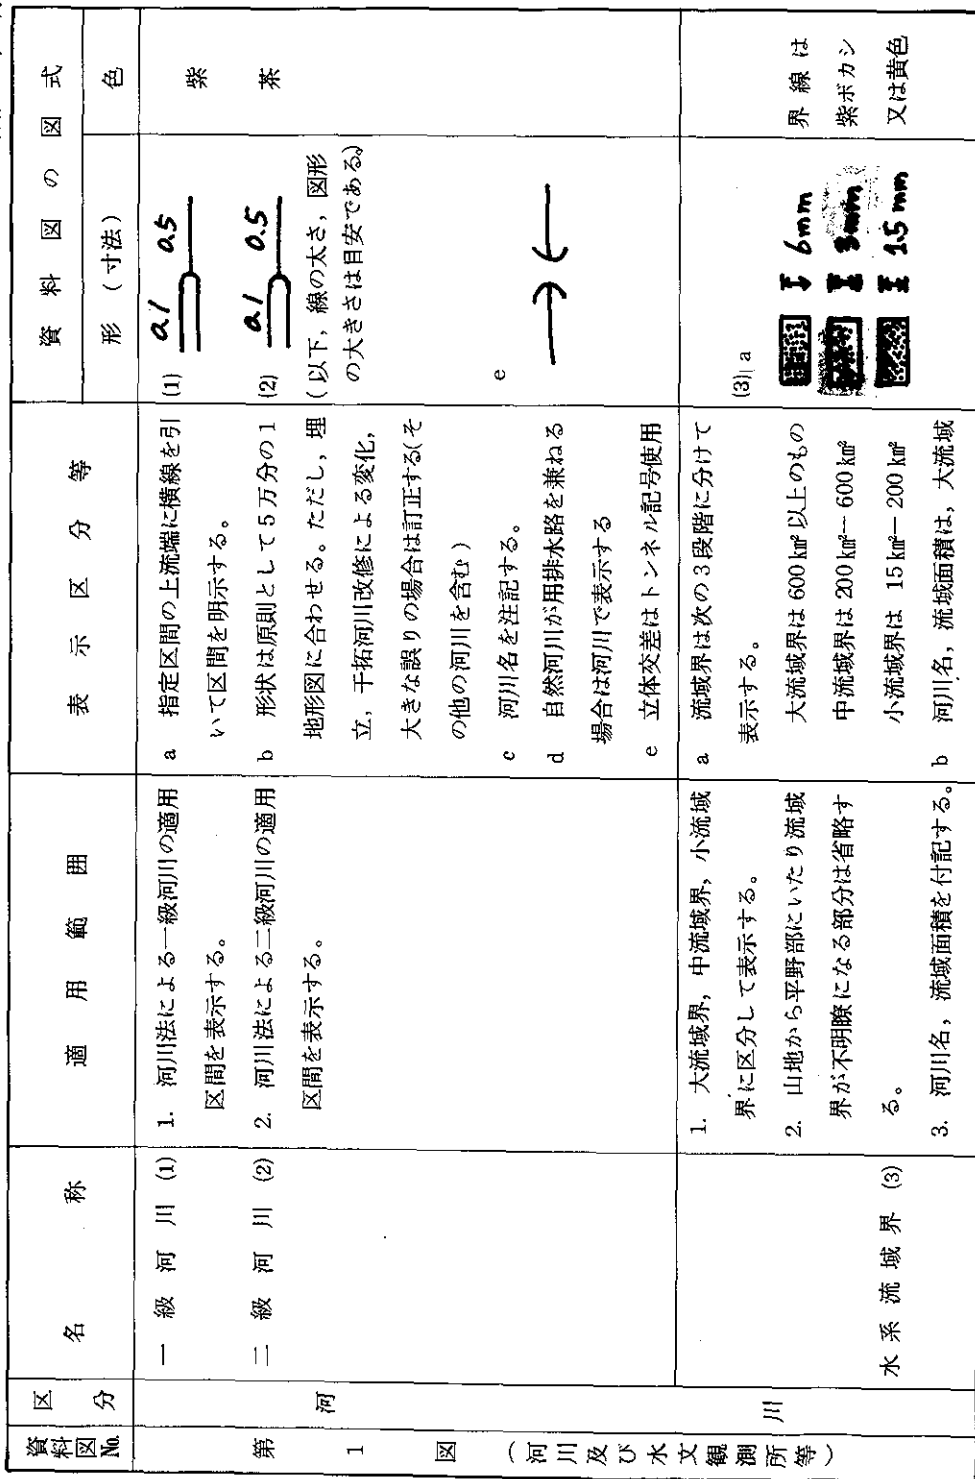 資料図No.
区分
名称
適用範囲
表示区分等
資料図の図式
形（寸法）
色
第1図（河川及び水文観測所等）
河川
一級河川 (1)
二級河川 (2)
1. 河川法による一級河川の適用
区間を表示する。
2. 河川法による二級河川の適用
区間を表示する。
a 指定区間の上流端に横線を引
いて区間を明示する。
b 形状は原則として5万分の1
地形図に合わせる。ただし，埋
立，干拓河川改修による変化，
大きな誤りの場合は訂正する（そ
の他の河川を含む）
c 河川名を注記する。
d 自然河川が用排水路を兼ねる
場合は河川で表示する
e 立体交差はトンネル記号使用
(1) 0.1 0.5
(2) 0.1 0.5
（以下，線の太さ，図形
の大きさは目安である。）
e
紫
茶
水系流域界 (3)
1. 大流域界，中流域界，小流域
界に区分して表示する。
2. 山地から平野部にいたり流域
界が不明瞭になる部分は省略す
る。
3. 河川名，流域面積を付記する。
a 流域界は次の3段階に分けて
表示する。
大流域界は600㎢以上のもの
中流域界は200㎢－600㎢
小流域界は 15㎢－200㎢
b 河川名，流域面積は，大流域
(3) a
6mm
3mm
1.5mm
界線は
紫ボカシ
又は黄色